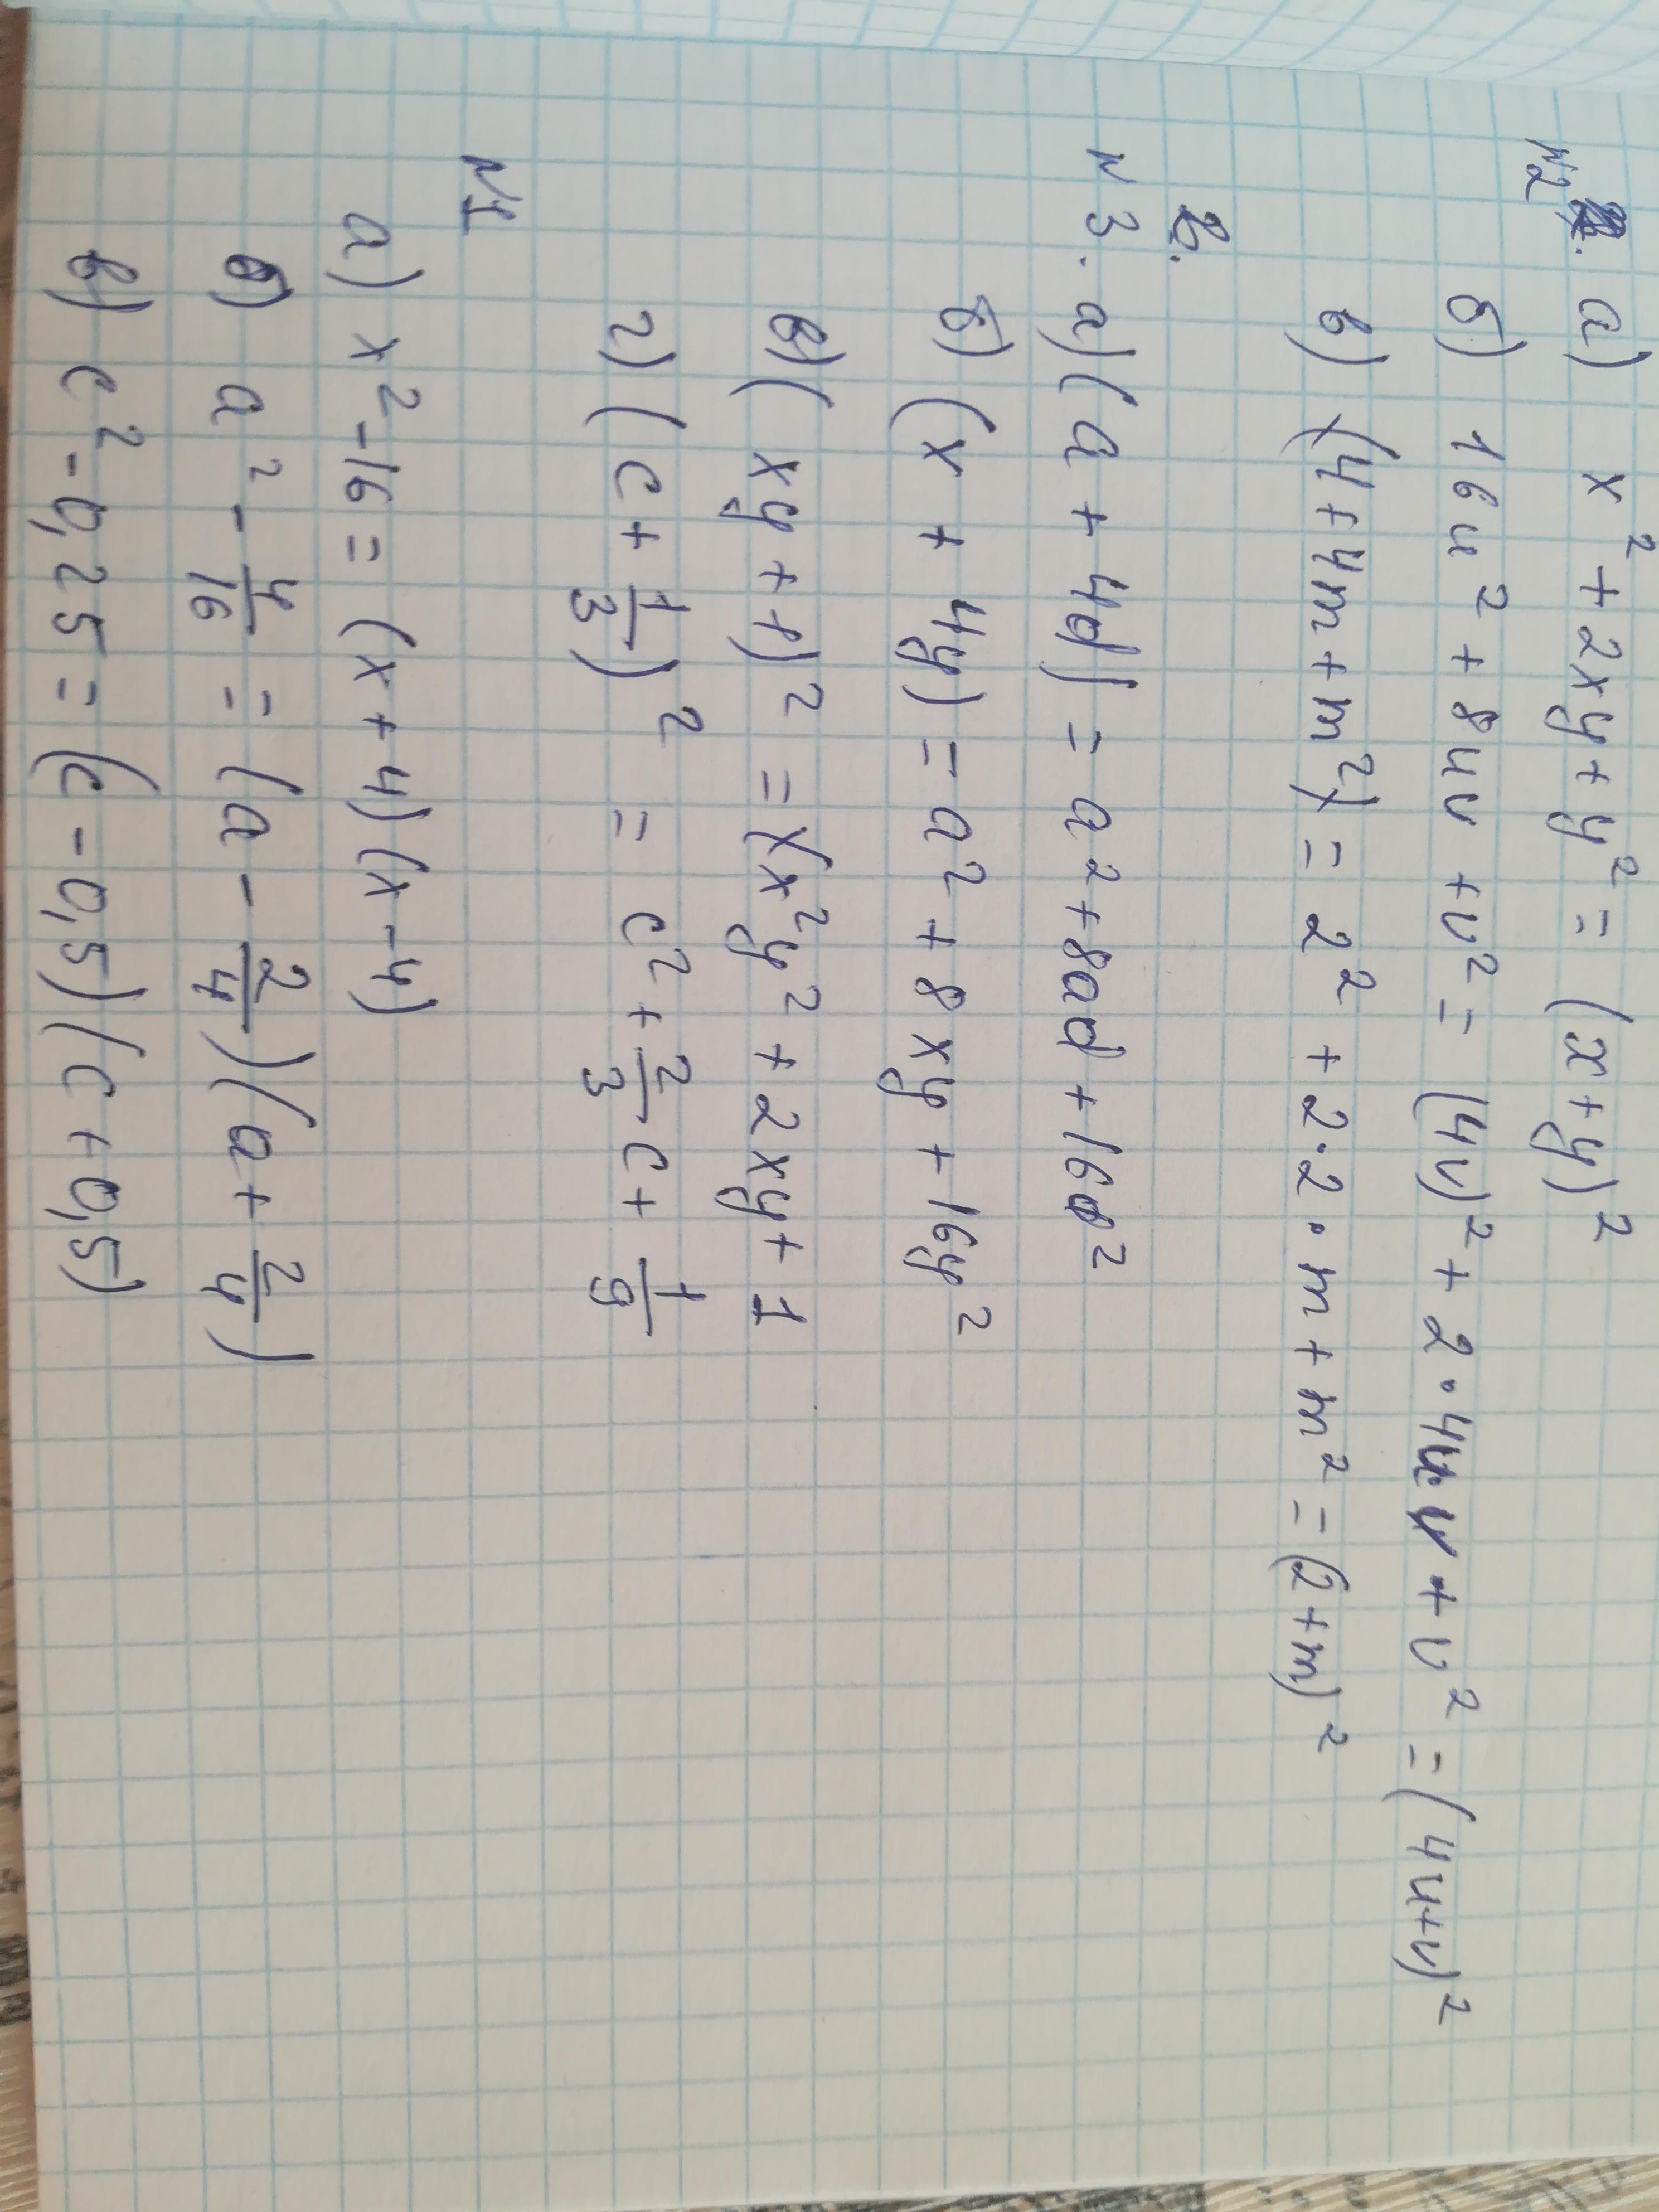 №2. а) x² + 2xy + y² = (x+y)²
б) 16u² + 8uv + v² = (4v)² + 2·4uv + v² = (4u+v)²
в) (4+4m+m²) = 2² + 2·2·m + m² = (2+m)²
№3. а) (a + 4d) = a² + 8ad + 16d²
б) (x + 4y) = a² + 8xy + 16y²
в) (xy + 1)² = (x²y² + 2xy + 1
г) (c + 1/3)² = c² + 2/3 c + 1/9
№1
а) x² - 16 = (x + 4)(x - 4)
б) a² - 4/16 = (a - 2/4)(a + 2/4)
в) c² - 0,25 = (c - 0,5)(c + 0,5)